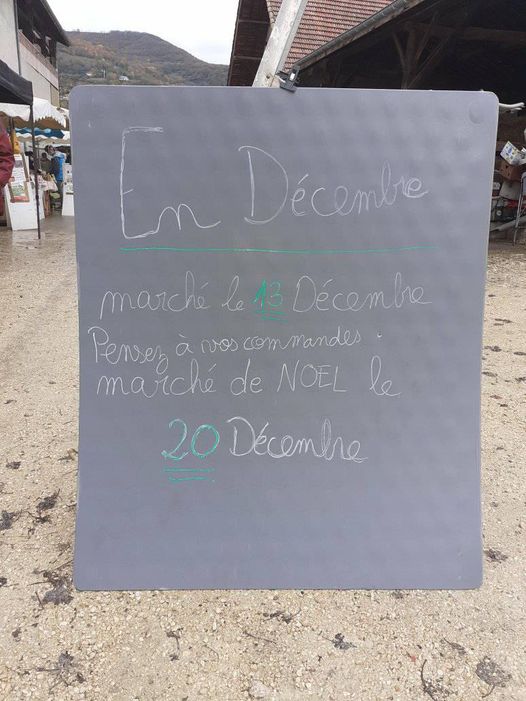 En Décembre
marché le 13 Décembre
Pensez à vos commandes.
marché de NOEL le
20 Décembre